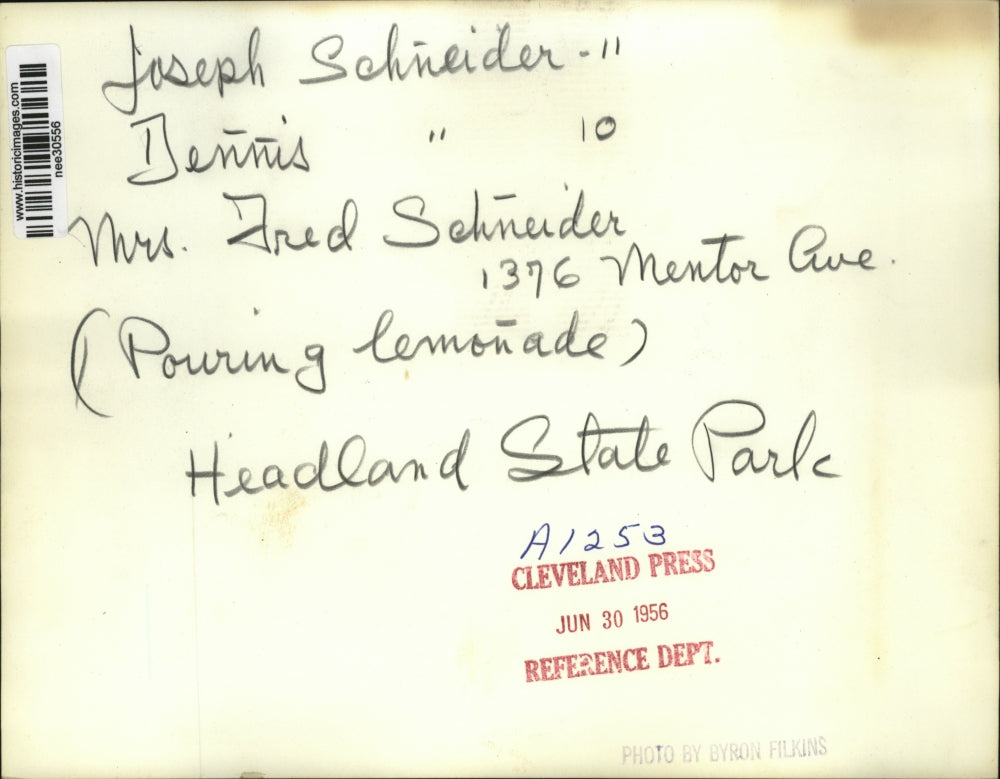 www.historicimages.com
nee30556
Joseph Schneider - 11
Dennis " 10
Mrs. Fred Schneider
1376 Mentor Ave.
(Pouring lemonade)
Headland State Park
A1253
CLEVELAND PRESS
JUN 30 1956
REFERENCE DEPT.
PHOTO BY BYRON FILKINS